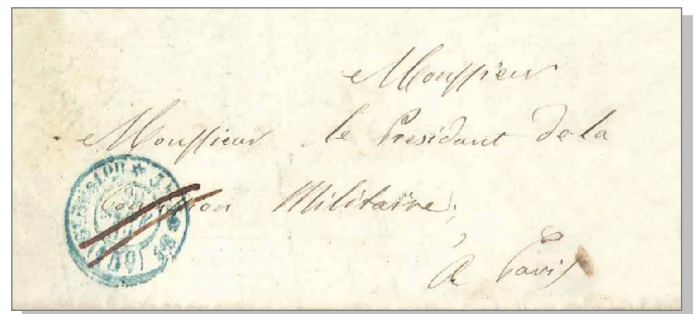 Monsieur
Monsieur le Président de la
Militaire,
à Paris